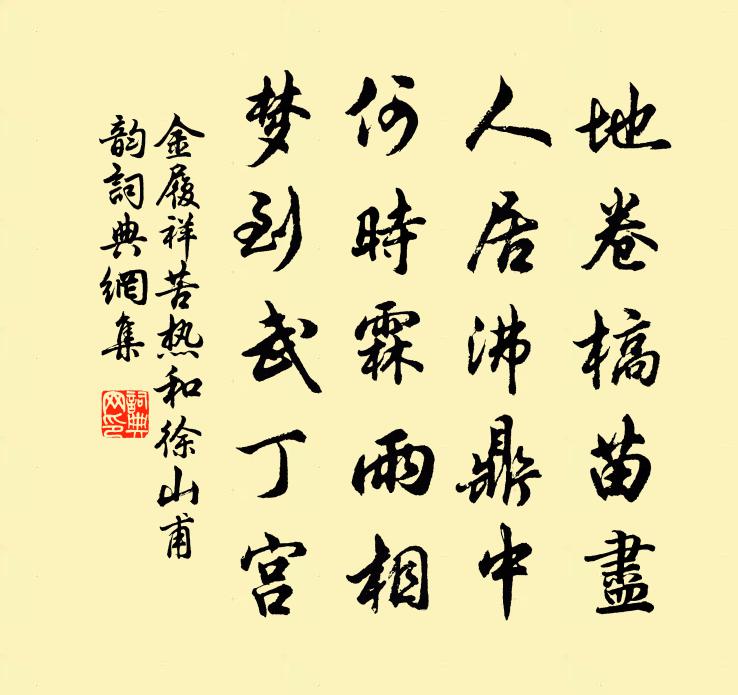 地卷槁苗盡
人居沸鼎中
何時霖雨相
梦到武丁宫
金履祥苦热和徐山甫
韵詞典網集
詞典
网印